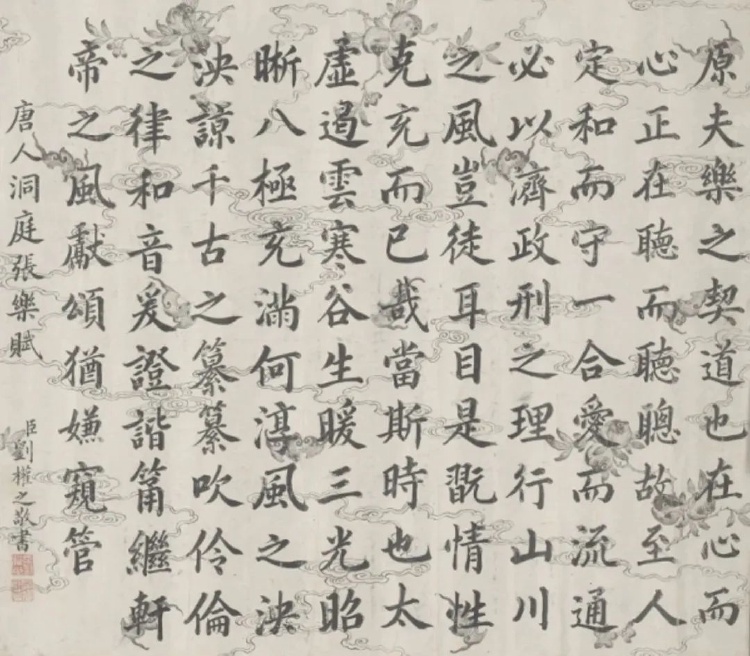 原夫樂之契道也在心而
心正在聽而聽聰故至人
定和而守一合愛而流通
必以濟政刑之理行山川
之風豈徒耳目是翫情性
克充而已哉當斯時也太
虛遏雲寒谷生暖三光昭
晰八極充滿何淳風之泱
泱諒千古之纂纂吹伶倫
之律和音爰證諧筩繼軒
帝之風獻頌猶嫌窺管
唐人洞庭張樂賦
臣劉權之敬書